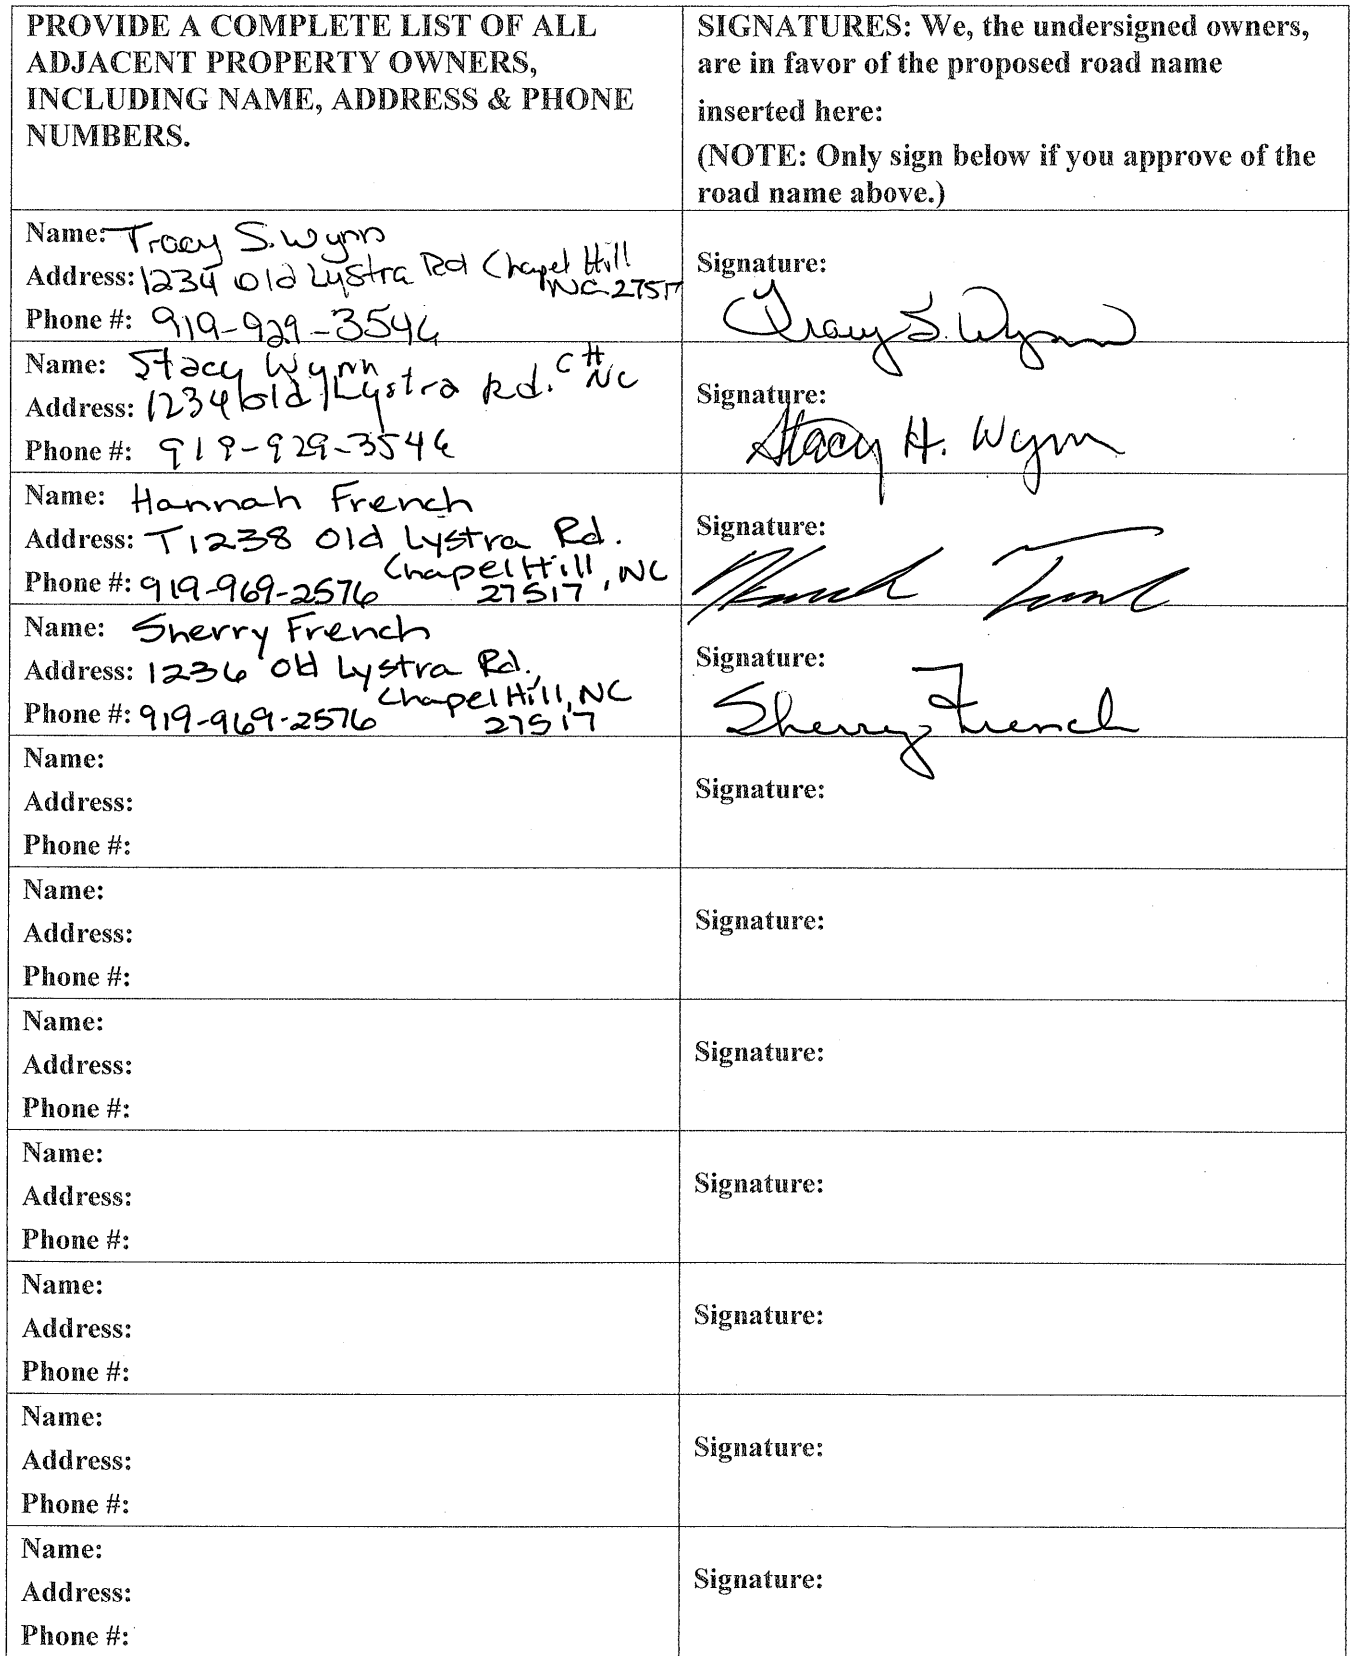 PROVIDE A COMPLETE LIST OF ALL
ADJACENT PROPERTY OWNERS,
INCLUDING NAME, ADDRESS & PHONE
NUMBERS.
SIGNATURES: We, the undersigned owners,
are in favor of the proposed road name
inserted here:
(NOTE: Only sign below if you approve of the
road name above.)
Name: Tracy S. Wynn
Address: 1234 Old Lystra Rd Chapel Hill
NC 27517
Phone #: 919-929-3546
Signature:
Tracy S. Wynn
Name: Stacy Wynn
Address: 1234 Old Lystra Rd. CH
NC
Phone #: 919-929-3546
Signature:
Stacy H. Wynn
Name: Hannah French
Address: T1238 Old Lystra Rd.
Chapel Hill, NC
Phone #: 919-969-2576 27517
Signature:
Hannah French
Name: Sherry French
Address: 1236 Old Lystra Rd.,
Chapel Hill, NC
Phone #: 919-969-2576 27517
Signature:
Sherry French
Name:
Address:
Phone #:
Signature:
Name:
Address:
Phone #:
Signature:
Name:
Address:
Phone #:
Signature:
Name:
Address:
Phone #:
Signature:
Name:
Address:
Phone #:
Signature:
Name:
Address:
Phone #:
Signature:
Name:
Address:
Phone #:
Signature: